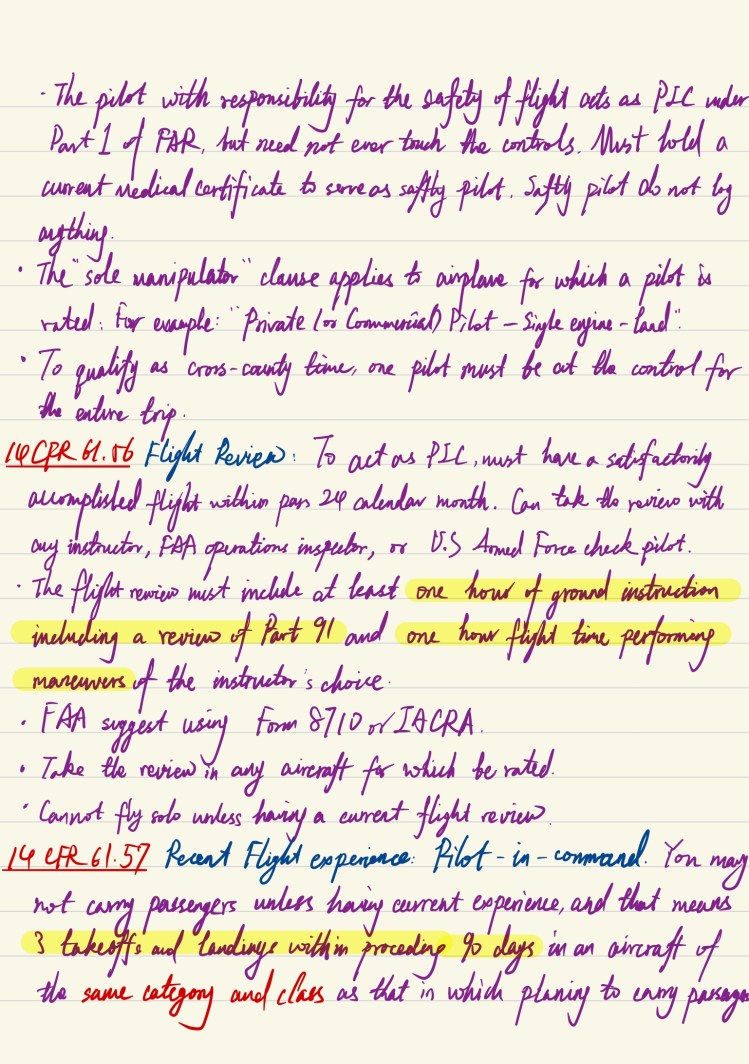 · The pilot with responsibility for the safety of flight acts as PIC under
Part 1 of FAR, but need not ever touch the controls. Must hold a
current medical certificate to serve as safty pilot. Safty pilot do not log
anything.
· The "sole manipulator" clause applies to airplane for which a pilot is
rated. For example: "Private (or Commercial) Pilot – Single engine – land".
· To qualify as cross-county time, one pilot must be at the control for
the entire trip.
14 CFR 61.56 Flight Review: To act as PIC, must have a satisfactorily
accomplished flight within pars 24 calendar month. Can take the review with
any instructor, FAA operations inspector, or U.S Armed Force check pilot.
· The flight review must include at least one hour of ground instruction
including a review of Part 91 and one hour flight time performing
maneuvers of the instructor's choice.
· FAA suggest using Form 8710 or IACRA.
· Take the review in any aircraft for which be rated.
· Cannot fly solo unless having a current flight review.
14 CFR 61.57 Recent Flight experience: Pilot-in-command. You may
not carry passengers unless having current experience, and that means
3 takeoffs and landings within proceding 90 days in an aircraft of
the same category and class as that in which planing to carry passage